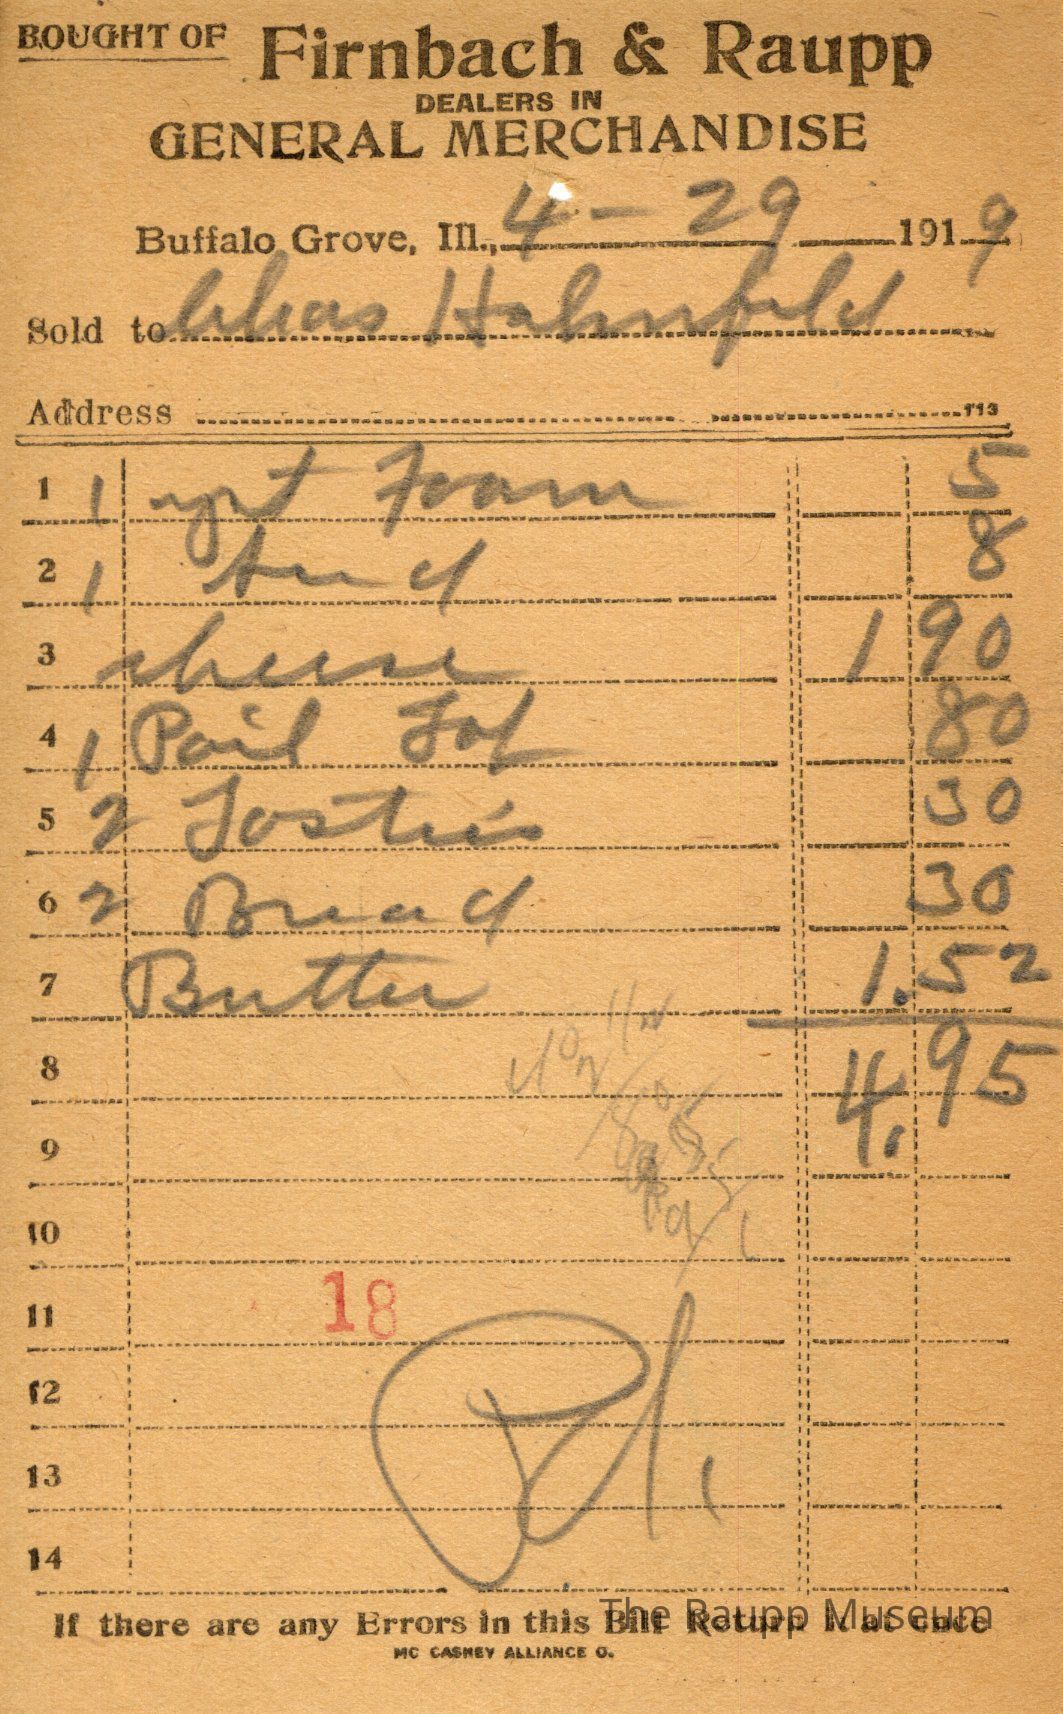 BOUGHT OF Firnbach & Raupp
DEALERS IN
GENERAL MERCHANDISE
Buffalo Grove, Ill., 4 - 29 1919
Sold to Chas Hahnfeld
Address 113
1 1 Foam 5
2 1 8
3 cheese 1 90
4 1 Pail 80
5 2 Tosties 30
6 2 Bread 30
7 Butter 1.52
8 4.95
9
10
11 18
12
13
14
If there are any Errors in this Bill Return it at once
The Raupp Museum
MC CASKEY ALLIANCE O.